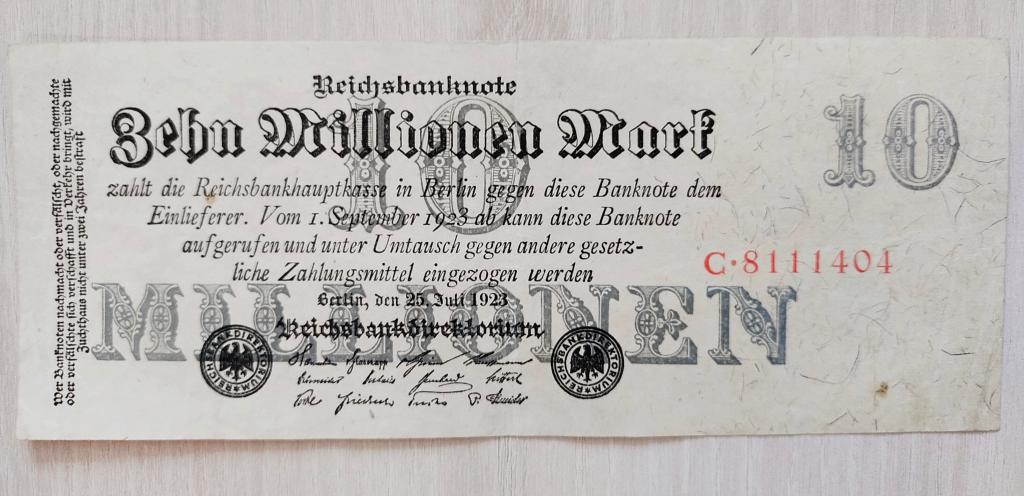 Reichsbanknote
Zehn Millionen Mark
10
10
zahlt die Reichsbankhauptkasse in Berlin gegen diese Banknote dem
Einlieferer. Vom 1. September 1923 ab kann diese Banknote
aufgerufen und unter Umtausch gegen andere gesetz-
liche Zahlungsmittel eingezogen werden
C·8111404
Berlin, den 25. Juli 1923
MILLIONEN
Reichsbankdirektorium
REICHSBANKDIREKTORIUM
REICHSBANKDIREKTORIUM
Wer Banknoten nachmacht oder verfälscht, oder nachgemachte
oder verfälschte sich verschafft und in Verkehr bringt, wird mit
Zuchthaus nicht unter zwei Jahren bestraft